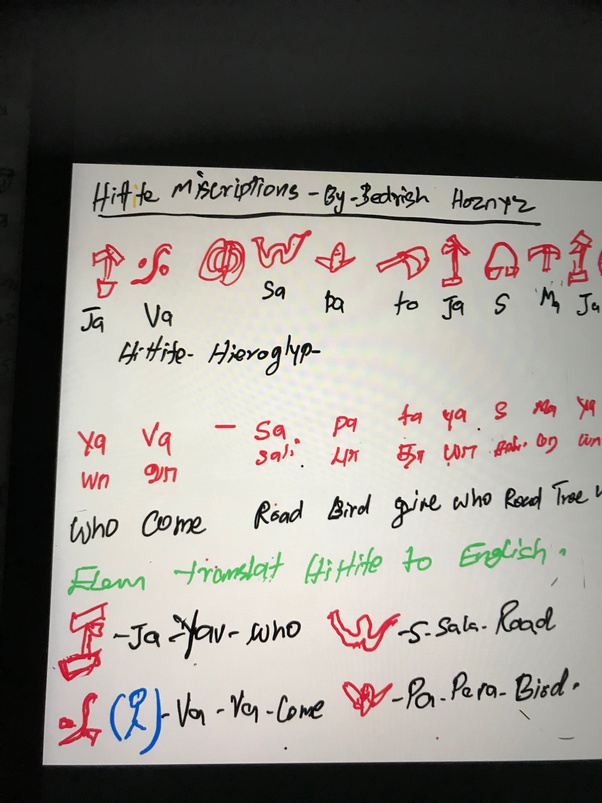 Hittite Miscriptions - By - Bedrish Hoznyz
Ja Va Sa pa to Ja S Ma Ja
Hittite - Hieroglyp -
Ya Va - Sa pa ta ya . S Ma ya
Who Come Road Bird give who Road Tree
Elem translat Hittite to English .
- Ja - Yav - who - S - Sala - Road
- Va - Va - Come - Pa - Para - Bird .